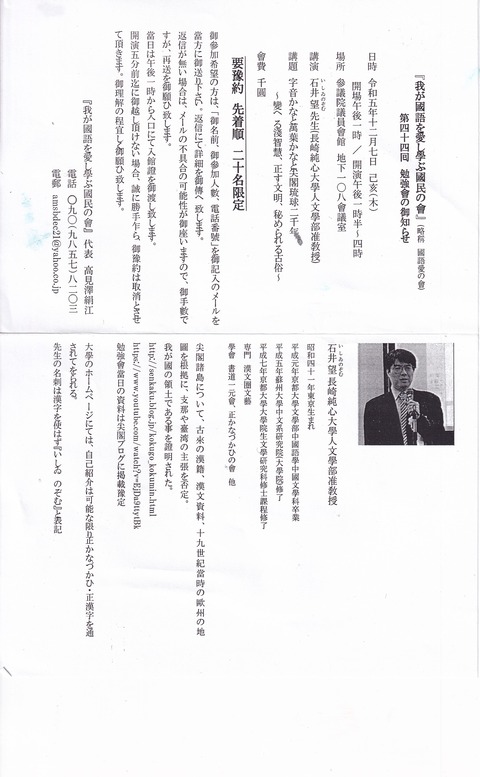 『我が國語を愛し學ぶ國民の會』(略稱 國語愛の會)
第四十四囘 勉強會の御知らせ
日時 令和五年十二月七日 己亥(木)
開場午後一時 / 開演午後一時半~四時
場所 參議院議員會館 地下一〇八會議室
いしゐのぞむ
講演 石井望 先生(長崎純心大學人文學部准敎授)
講題 字音かなと萬葉かなと尖閣琉球二千年
~變へる淺智慧、正す文明、祕められる古俗~
會費 千圓
要豫約 先着順 二十名限定
御參加希望の方は、「御名前、御參加人數、電話番號」を御記入のメールを
當方に御送り下さい。返信にて詳細を御傳へ致します。
返信が無い場合は、メールの不具合の可能性が御座いますので、御手數で
すが、再送を御願ひ致します。
當日は午後一時から入口にて入館證を御渡し致します。
開演五分前迄に御越し頂けない場合、誠に勝手乍ら、御豫約は取消とさせ
て頂きます。御理解の程宜しく御願ひ致します。
『我が國語を愛し學ぶ國民の會』 代表 高見澤絹江
電話 〇九〇(九八五七)八二〇三
電郵 amobdec21@yahoo.co.jp
いしゐのぞむ
石井望 長崎純心大學人文學部准敎授
昭和四十一年東京生まれ
平成元年京都大學文學部中國語學中國文學科卒業
平成五年蘇州大學中文系硏究院(大學院)修了
平成七年京都大學大學院生文學硏究科修士課程修了
專門 漢文圈文藝
學會 書道一元會、正かなづかひの會 他
尖閣諸島について、古來の漢籍、漢文資料、十九世紀當時の歐州の地
圖を根據に、支那や臺灣の主張を否定。
我が國の領土である事を證明された。
http://senkaku.blog.jp/kokugo_kokumin.html
https://www.youtube.com/watch?v=EjDa9ttytBk
勉強會當日の資料は尖閣ブログに揭載豫定
大學のホームページにては、自己紹介は可能な限り正かなづかひ・正漢字を通
されてをられる。
先生の名刺は漢字を使はず『いしゐ のぞむ』と表記